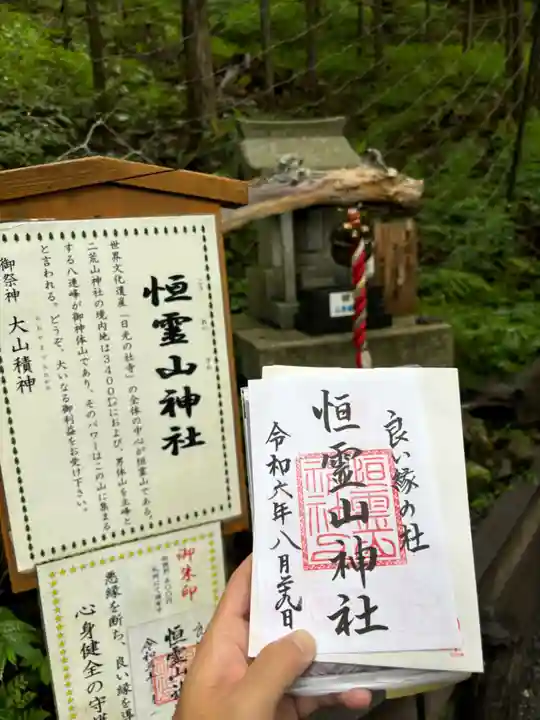 恒霊山神社
世界文化遺産「日光の社寺」の全体の中心が恒霊山である。
二荒山神社の境内地は3400㌶におよび、男体山を主峰と
する八連峰が御神体山であり、そのパワーはこの山に集まる
と言われる。どうぞ、大いなる御利益をお受け下さい。
御祭神 大山積神
良い縁の社
恒霊山神社
令和六年八月廿九日
御朱印
悪縁を断ち、良い縁を導
心身健全の守護
恒霊山神社